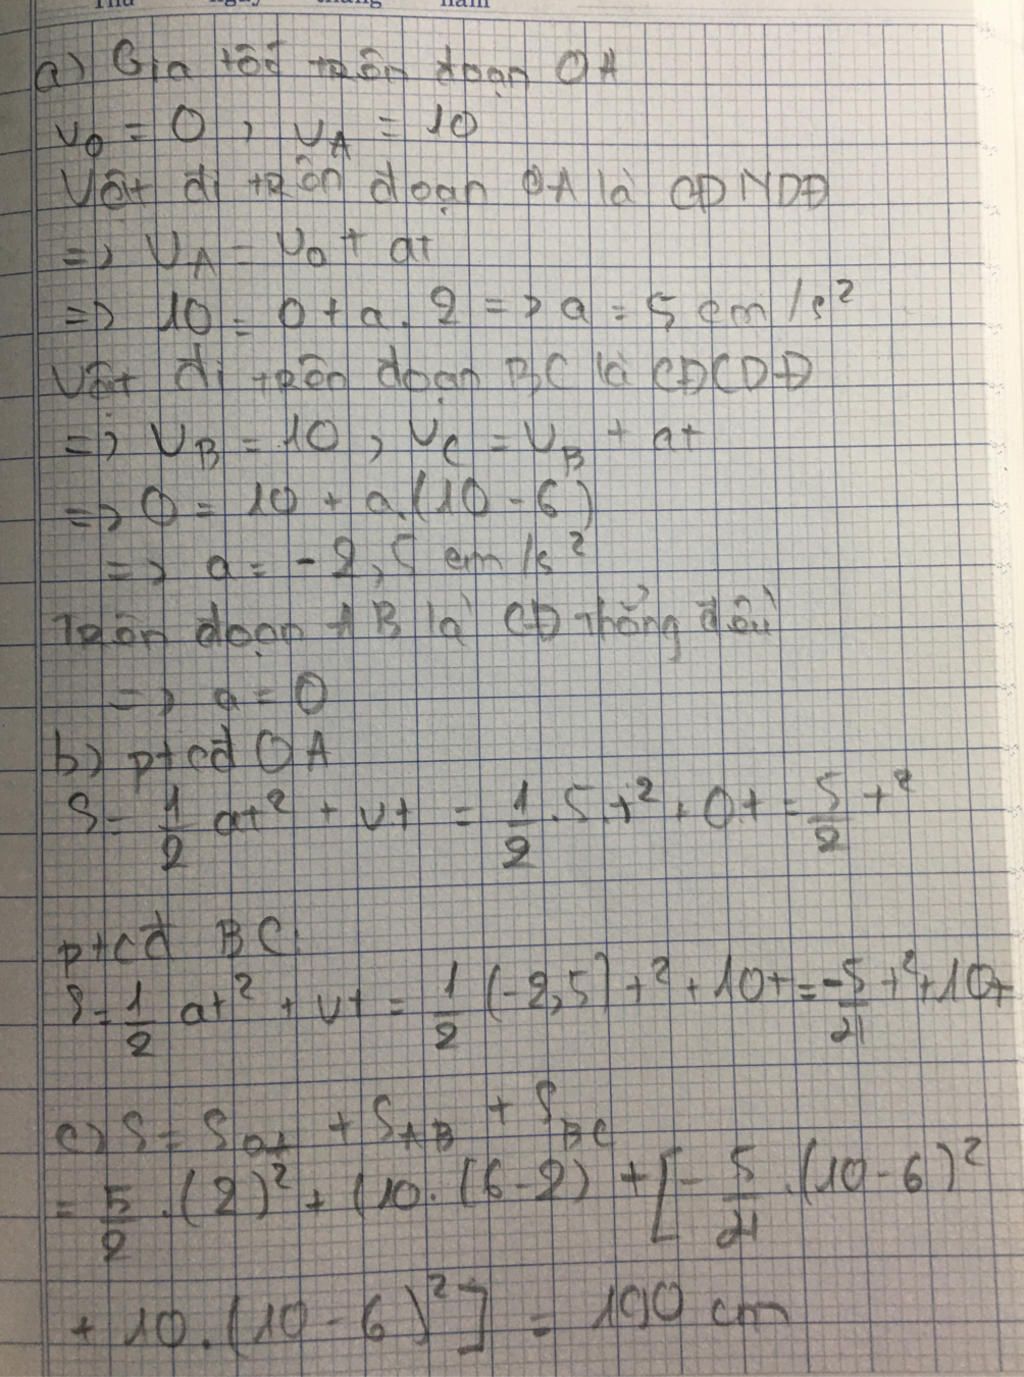 Thứ ngày tháng năm
a) Gia tốc trên đoạn OA
v₀ = 0 , v_A = 10
Vật đi trên đoạn OA là CDNDĐ
=> v_A = v₀ + at
=> 10 = 0 + a. 2 => a = 5 cm/s²
Vật đi trên đoạn BC là CDCDĐ
=> v_B = 10 , v_C = v_B + at
=> 0 = 10 + a.(10 - 6)
=> a = -2,5 cm/s²
Trên đoạn AB là CĐ thẳng đều
=> a = 0
b) ptcđ OA
S = 1/2 at² + vt = 1/2 .5t² + 0t = 5/2 t²
ptcđ BC
S = 1/2 at² + vt = 1/2 (-2,5)t² + 10t = -5/4 t² + 10t
c) S = S_OA + S_AB + S_BC
= 5/2 .(2)² + (10.(6-2) + [- 5/4 .(10-6)²
+ 10.(10-6)²] = 190 cm